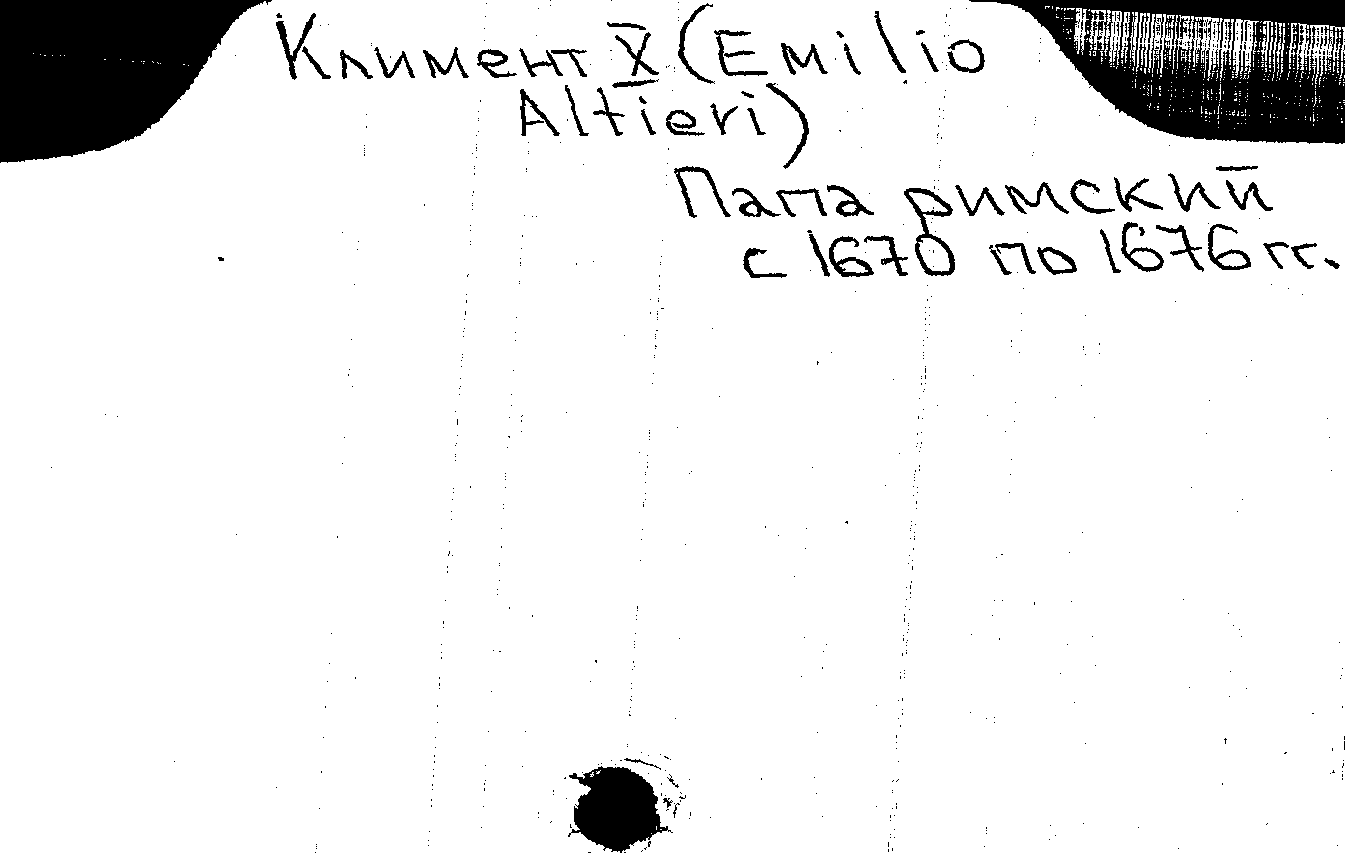 Климент X (Emilio
Altieri)
Папа римский
с 1670 по 1676 гг.